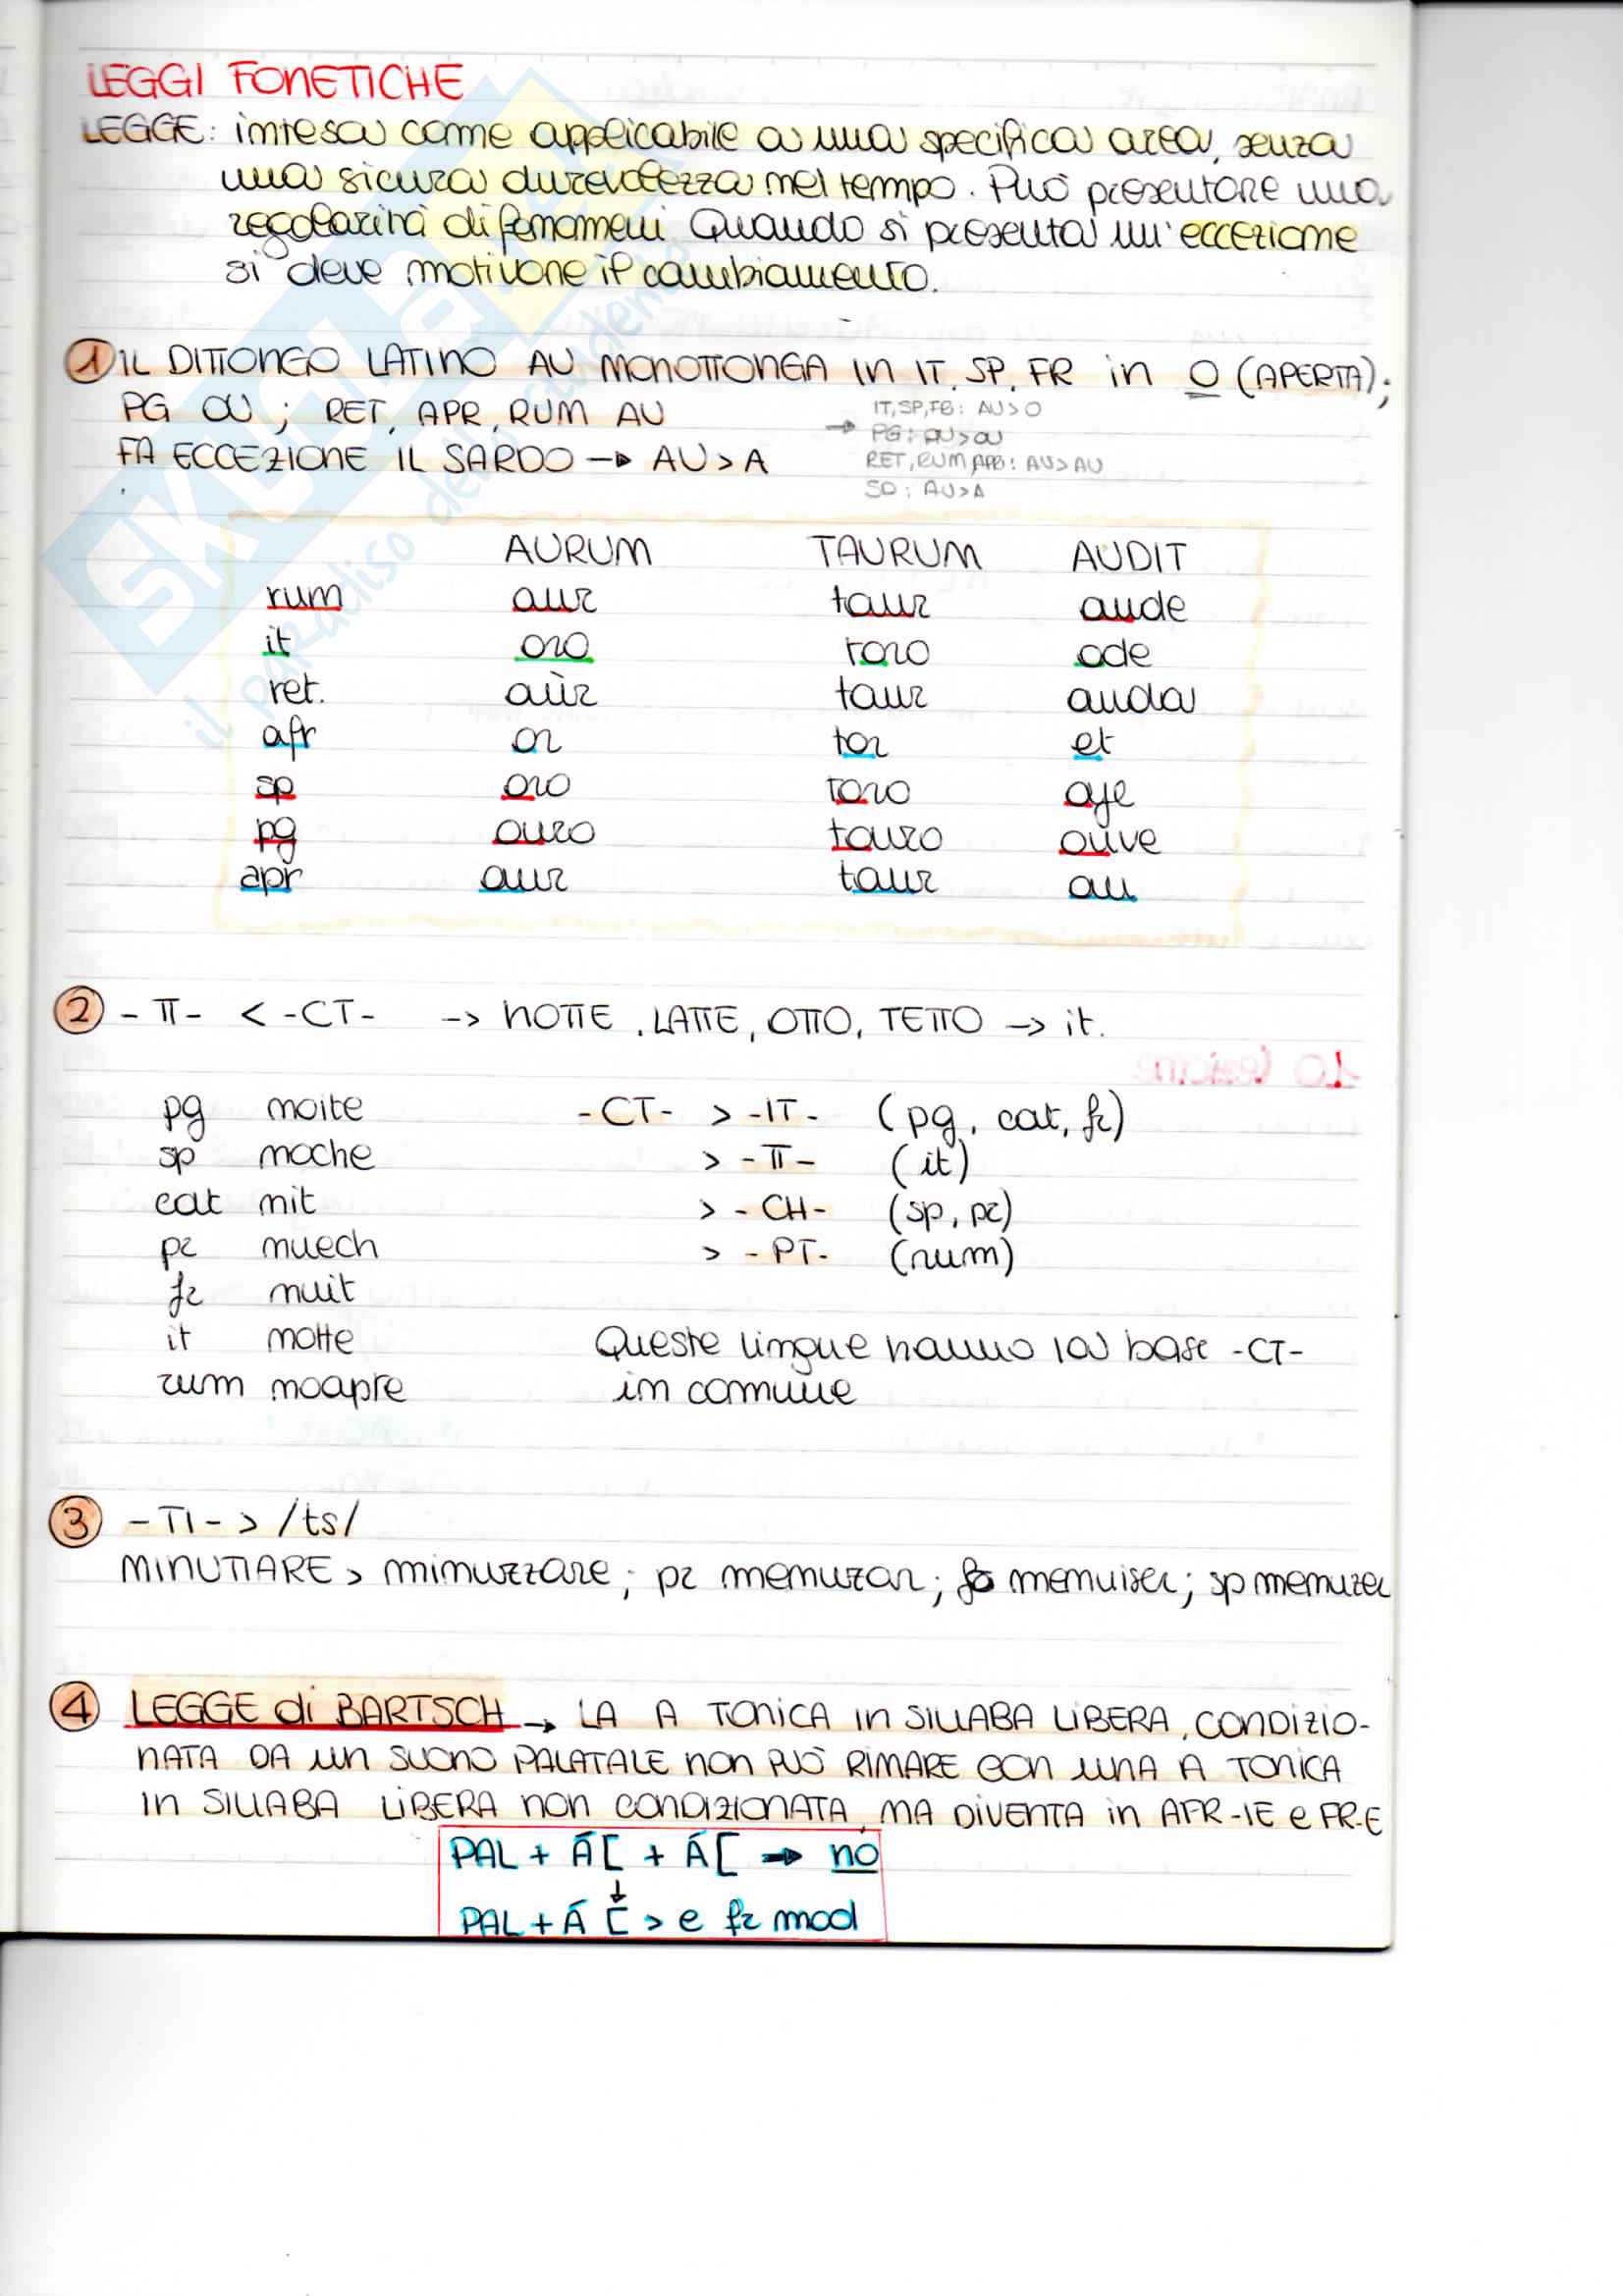 LEGGI FONETICHE
LEGGE: intesa come applicabile a una specifica area, senza
una sicura durevolezza nel tempo. Può presentare una
regolarità di fenomeni. Quando si presenta un'eccezione
si deve motivare il cambiamento.
1 IL DITTONGO LATINO AU MONOTTONGA IN IT, SP, FR in O (APERTA);
PG OU; RET, APR, RUM AU
FA ECCEZIONE IL SARDO → AU > A
IT, SP, FR: AU > O
→ PG: AU > OU
RET, RUM, APR: AU > AU
SD: AU > A
AURUM TAURUM AUDIT
rum aur taur aude
it oro toro ode
ret. aùr taur auda
afr or tor et
sp oro toro oye
pg ouro touro ouve
apr aur taur au
2 -TT- < -CT- -> NOTTE, LATTE, OTTO, TETTO -> it.
pg noite -CT- > -IT- (pg, cat, fr)
sp noche > -TT- (it)
cat nit > -CH- (sp, pr)
pr nuech > -PT- (rum)
fr nuit
it notte Queste lingue hanno la base -CT-
rum noapte in comune
3 -TI- > /ts/
MINUTIARE > minuzzare; pr menuzar; fr menuiser; sp menuzer
4 LEGGE di BARTSCH → LA A TONICA IN SILLABA LIBERA, CONDIZIO-
NATA DA UN SUONO PALATALE NON PUÒ RIMARE CON UNA A TONICA
IN SILLABA LIBERA NON CONDIZIONATA, MA DIVENTA in AFR-IE e FR-E
PAL + Á[ + Á[ → no
↓
PAL + Á [ > e fr mod
SKUOLA.net
il paradiso dello studente
10 lezione